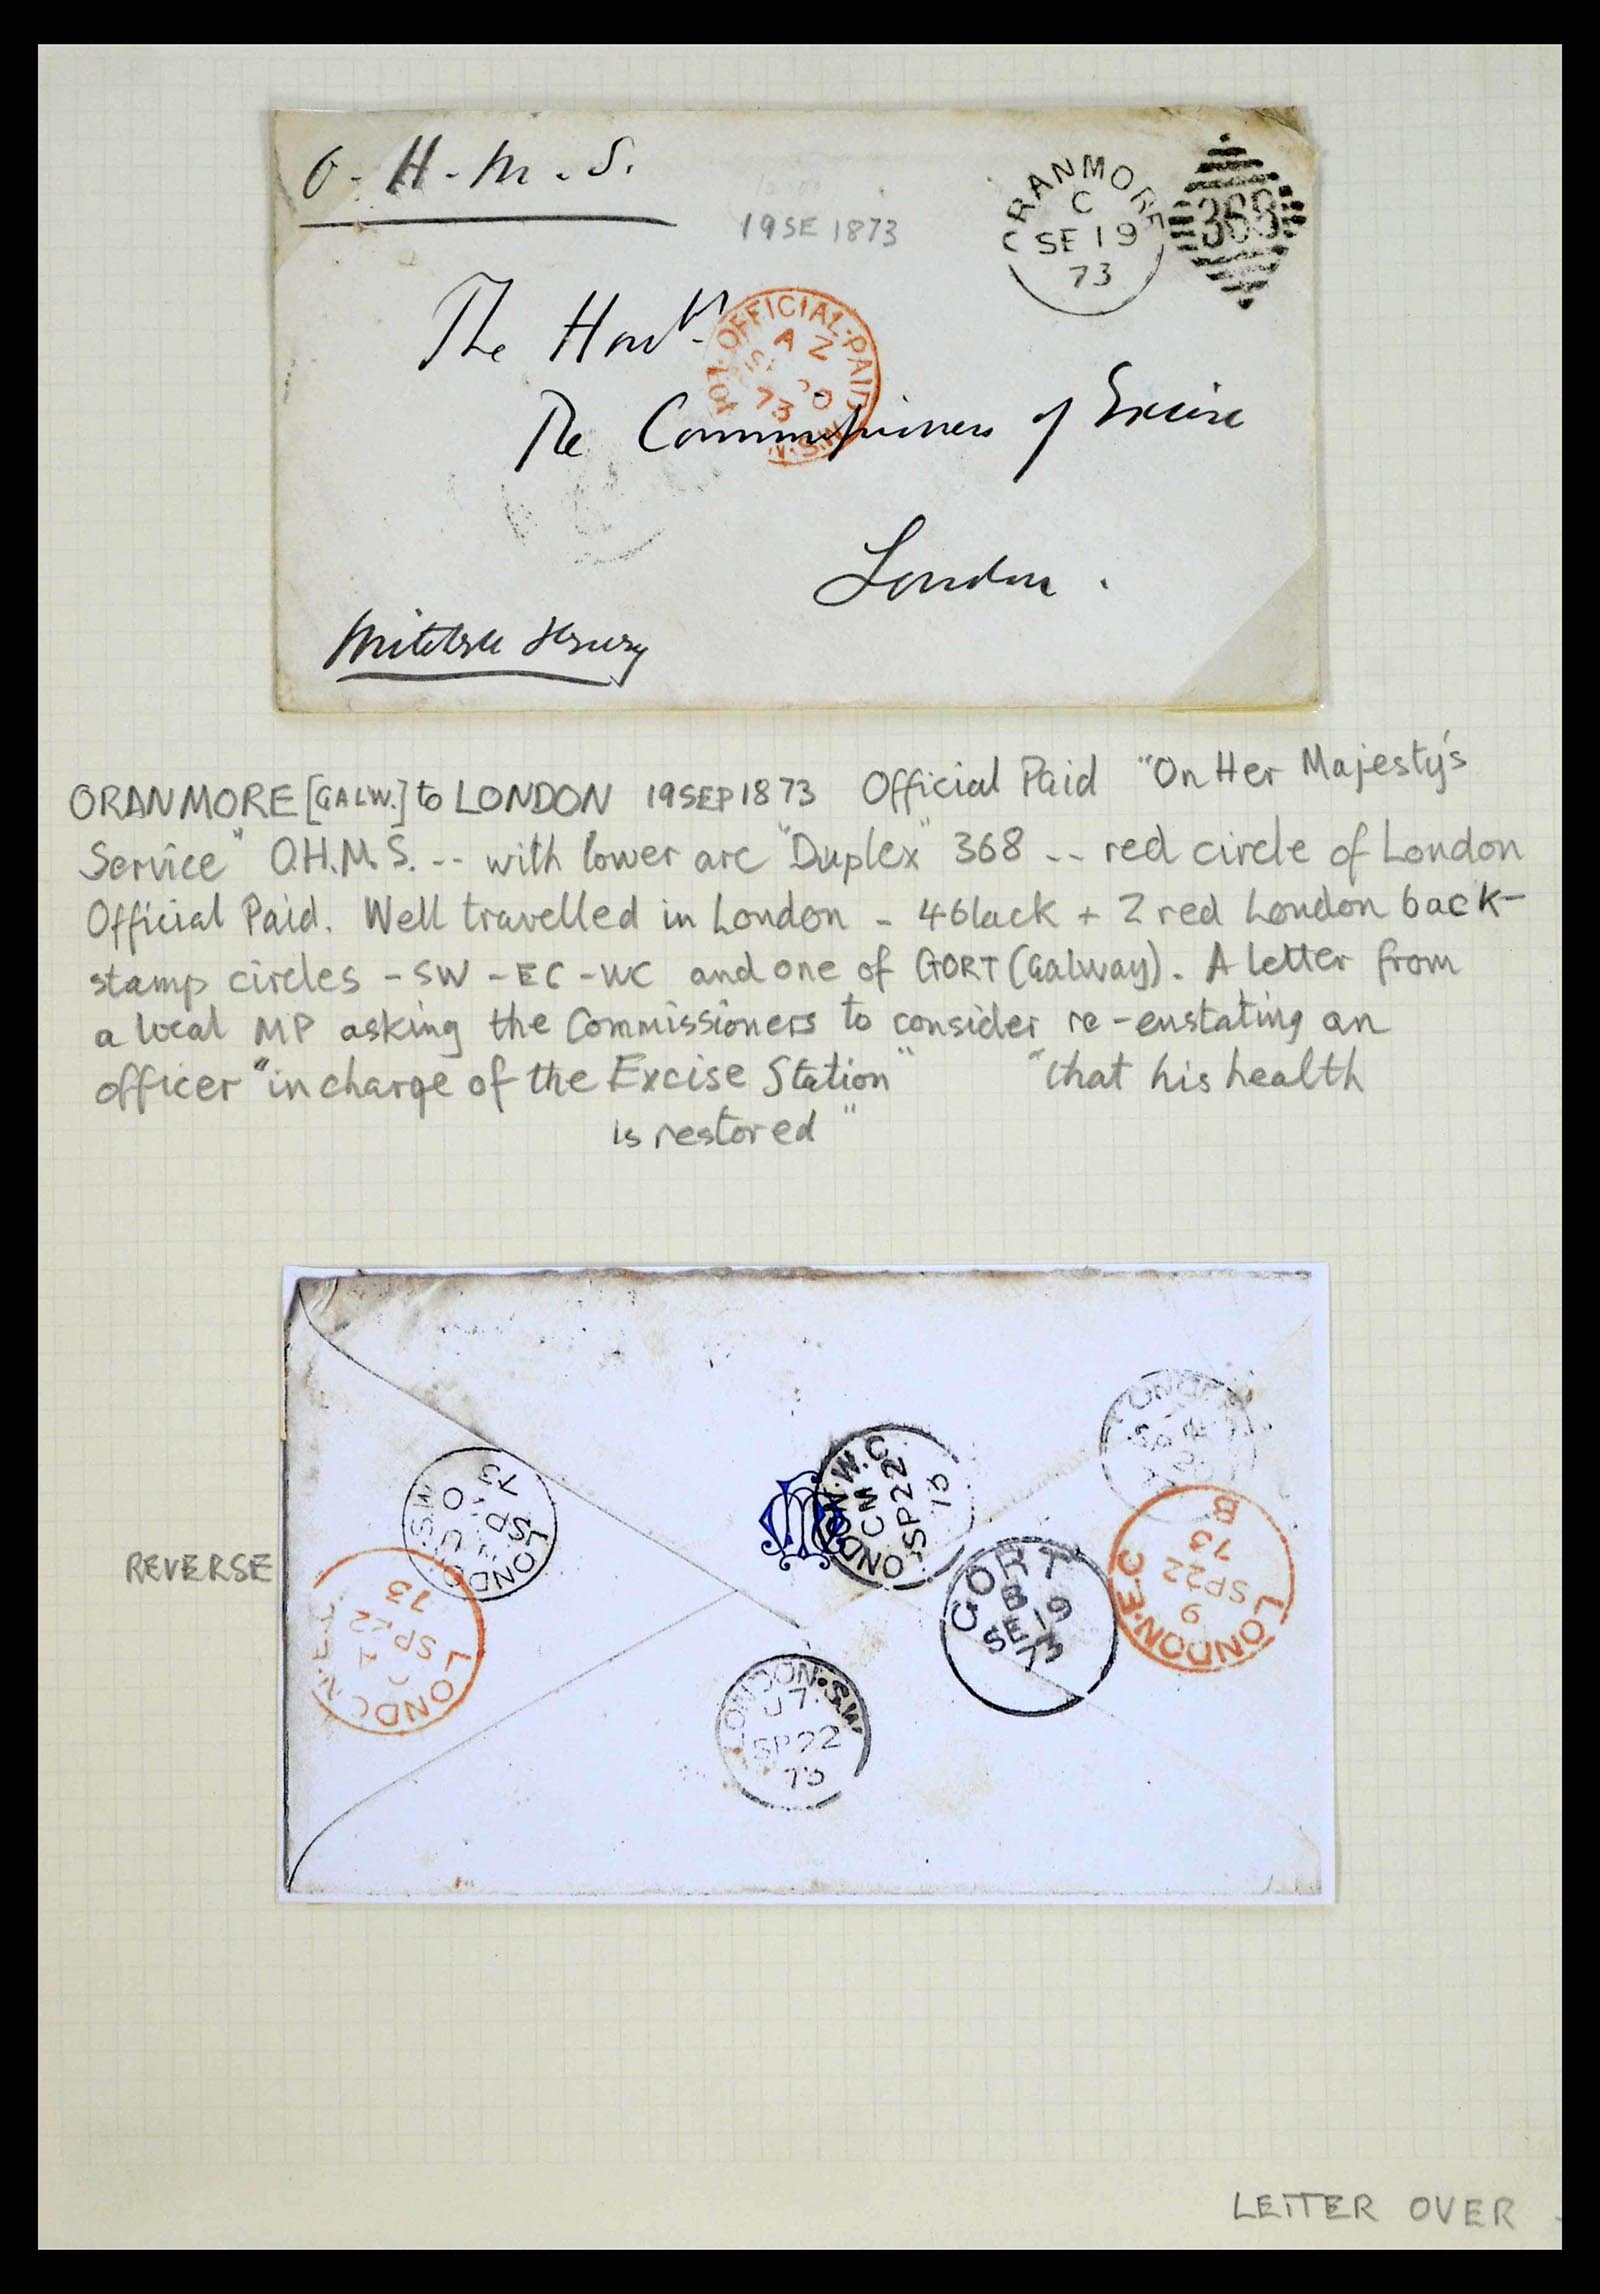 O. H. M. S.
19 SE 1873
ORANMORE
C
SE 19
73
368
The Honble
OFFICIAL·PAID
A Z
73
The Commissioners of Excise
London.
Mitchell Henry
ORANMORE [GALW.] to LONDON 19SEP1873 Official Paid "On Her Majesty's
Service" O.H.M.S. -- with lower arc "Duplex" 368 -- red circle of London
Official Paid. Well travelled in London - 4black + 2 red London back-
stamp circles - SW - EC - WC and one of GORT (Galway). A letter from
a local MP asking the Commissioners to consider re-enstating an
officer "in charge of the Excise Station" "that his health
is restored"
REVERSE
LONDON·W.C
CM
SP22
73
GORT
B
SE 19
73
LONDON·E.C
9
SP22
73
B
LONDON·SW
U7
SP22
73
LETTER OVER